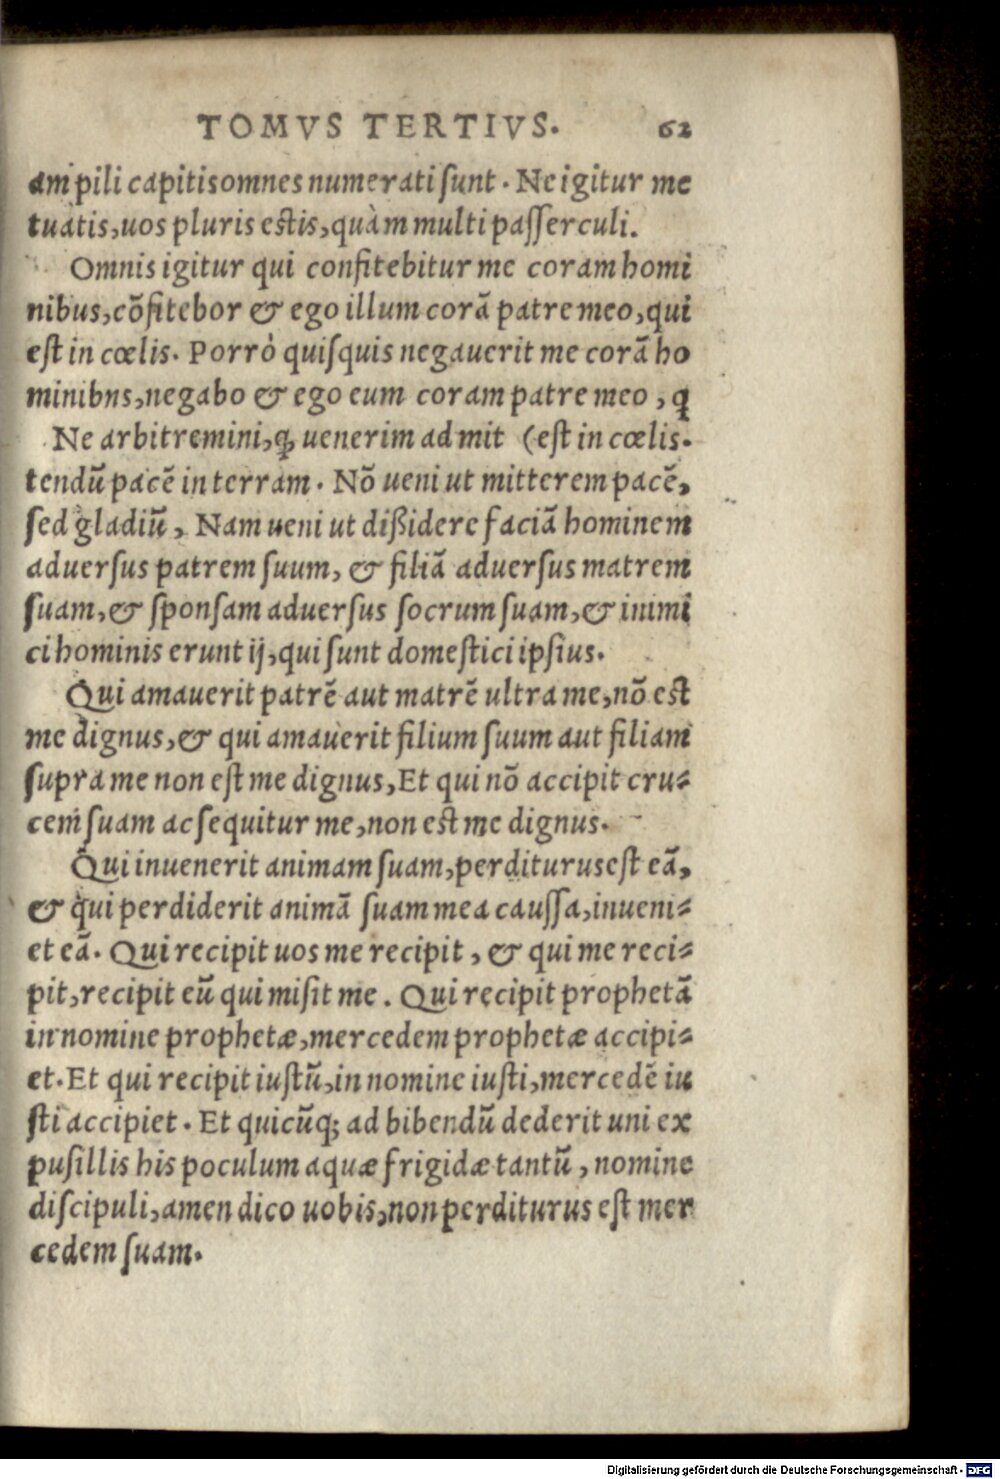 TOMVS TERTIVS. 62
am pili capitis omnes numerati ſunt. Ne igitur me
tuatis, uos pluris eſtis, quàm multi paſſerculi.
Omnis igitur qui confitebitur me coram homi
nibus, cõfitebor & ego illum corã patre meo, qui
eſt in cœlis. Porrò quiſquis negauerit me corã ho
minibns, negabo & ego eum coram patre meo, q
Ne arbitremini, ꝙ uenerim ad mit (eſt in cœlis.
tendũ pacẽ in terram. Nõ ueni ut mitterem pacẽ,
ſed gladiũ, Nam ueni ut dißidere faciã hominem
aduerſus patrem ſuum, & filiã aduerſus matrem
ſuam, & ſponſam aduerſus ſocrum ſuam, & inimi
ci hominis erunt ij, qui ſunt domeſtici ipſius.
Qui amauerit patrẽ aut matrẽ ultra me, nõ eſt
me dignus, & qui amauerit filium ſuum aut filiam
ſupra me non eſt me dignus, Et qui nõ accipit cru⸗
cem ſuam ac ſequitur me, non eſt me dignus.
Qui inuenerit animam ſuam, perditurus eſt eã,
& qui perdiderit animã ſuam mea cauſſa, inueni⸗
et eã. Qui recipit uos me recipit, & qui me reci⸗
pit, recipit eũ qui miſit me. Qui recipit prophetã
in nomine prophetæ, mercedem prophetæ accipi⸗
et. Et qui recipit iuſtũ, in nomine iuſti, mercedẽ iu
ſti accipiet. Et quicũq; ad bibendũ dederit uni ex
puſillis his poculum aquæ frigidæ tantũ, nomine
diſcipuli, amen dico uobis, non perditurus eſt mer
cedem ſuam.
Digitalisierung gefördert durch die Deutsche Forschungsgemeinschaft - DFG